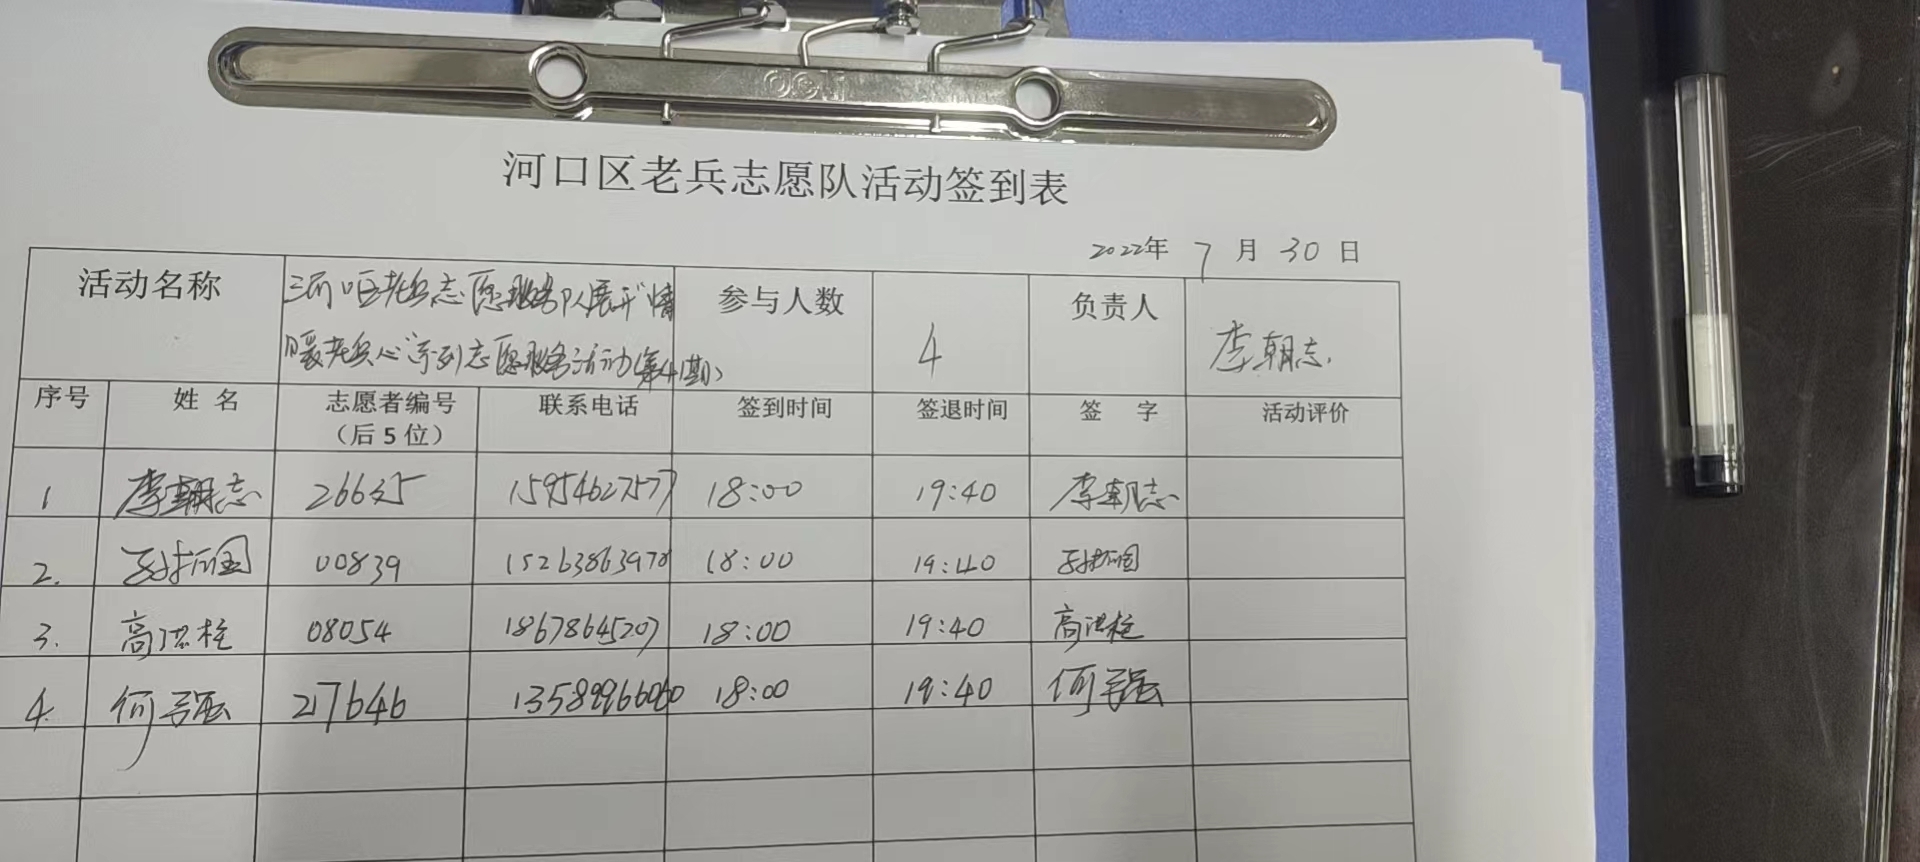 deli
河口区老兵志愿队活动签到表
2022年 7 月 30 日
活动名称 河口区老兵志愿服务队展开"情 参与人数 4 负责人 李朝志
暖老兵心"系列志愿服务活动(第41期)
序号 姓 名 志愿者编号 联系电话 签到时间 签退时间 签 字 活动评价
（后5位）
1 李朝志 15954627577 18:00 19:40 李朝志
2. 00839 15263863978 18:00 19:40
3. 高洪柱 08054 18678645207 18:00 19:40 高洪柱
4. 217646 13589966060 18:00 19:40